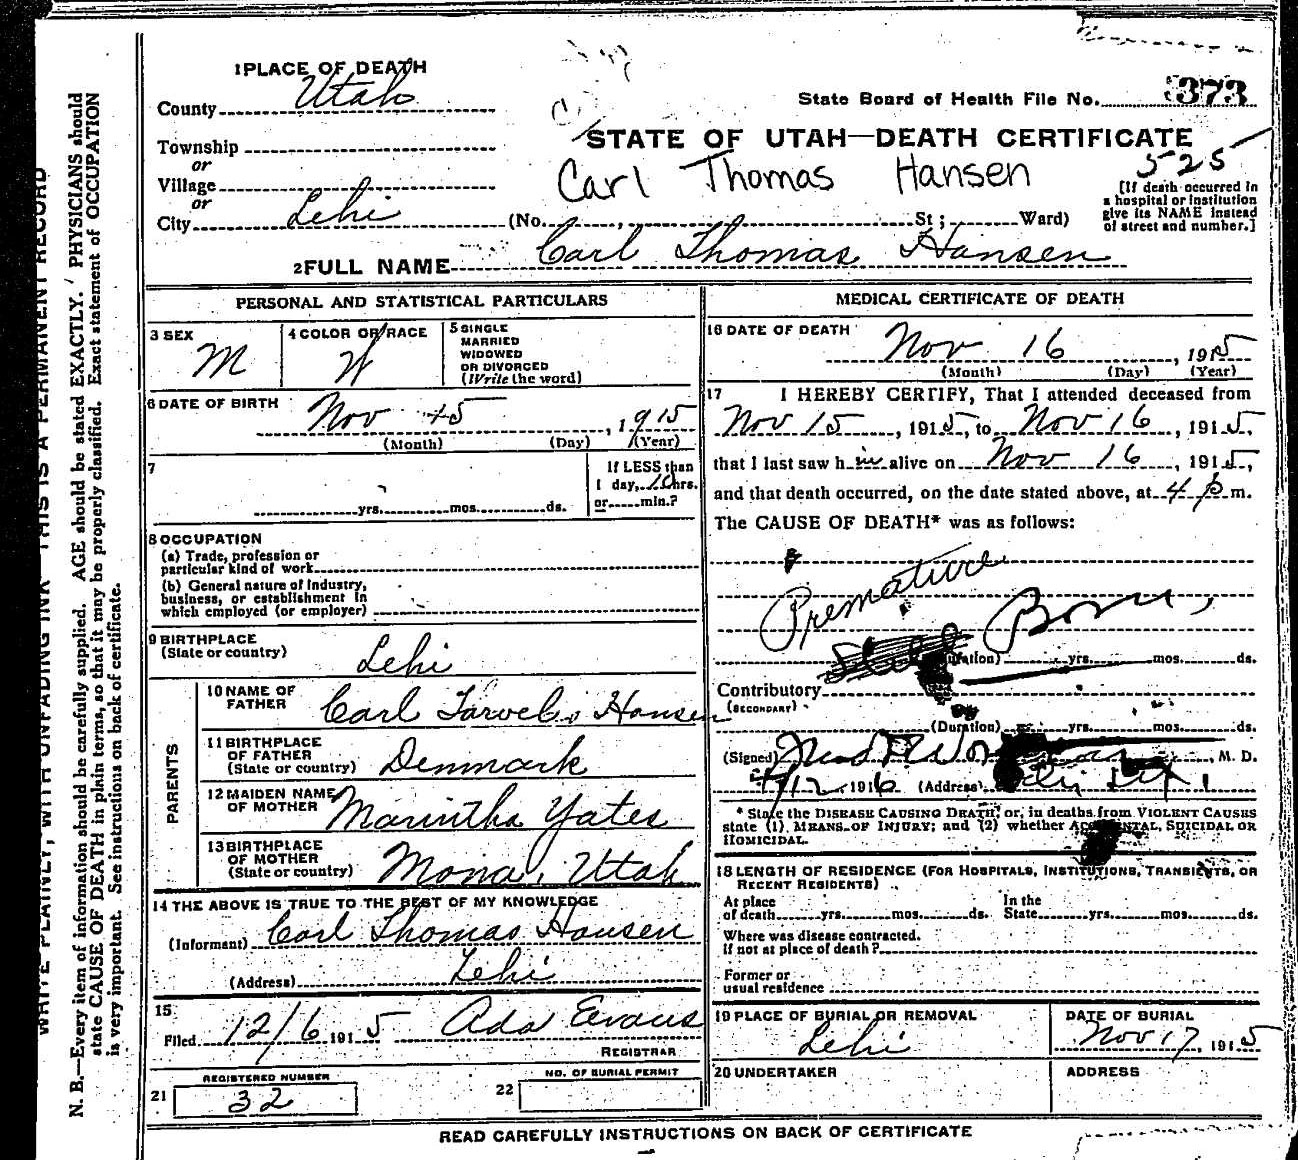 1 PLACE OF DEATH
County Utah
State Board of Health File No. 373
STATE OF UTAH—DEATH CERTIFICATE
Township
or
Village
or
City Lehi
Carl Thomas Hansen
525
[If death occurred in
a hospital or institution
give its NAME instead
of street and number.]
(No. , St ; Ward)
2 FULL NAME Carl Thomas Hansen
PERSONAL AND STATISTICAL PARTICULARS
3 SEX
M
4 COLOR OR RACE
W
5 SINGLE
MARRIED
WIDOWED
OR DIVORCED
(Write the word)
6 DATE OF BIRTH
Nov 15, 1915
(Month) (Day) (Year)
7
yrs. mos. ds.
If LESS than
1 day, hrs.
or min.?
8 OCCUPATION
(a) Trade, profession or
particular kind of work
(b) General nature of Industry,
business, or establishment in
which employed (or employer)
9 BIRTHPLACE
(State or country)
Lehi
PARENTS
10 NAME OF
FATHER
Carl Hansen
11 BIRTHPLACE
OF FATHER
(State or country)
Denmark
12 MAIDEN NAME
OF MOTHER
Yates
13 BIRTHPLACE
OF MOTHER
(State or country)
Mona, Utah
14 THE ABOVE IS TRUE TO THE BEST OF MY KNOWLEDGE
(Informant) Carl Thomas Hansen
(Address) Lehi
15
Filed 12/6 1915 Ada Evans
REGISTRAR
21 REGISTERED NUMBER
32
22 NO. OF BURIAL PERMIT
MEDICAL CERTIFICATE OF DEATH
16 DATE OF DEATH
Nov 16, 1915
(Month) (Day) (Year)
17 I HEREBY CERTIFY, That I attended deceased from
Nov 15, 1915, to Nov 16, 1915,
that I last saw him alive on Nov 16, 1915,
and that death occurred, on the date stated above, at 4 p m.
The CAUSE OF DEATH* was as follows:
Premature
Born,
(Duration) yrs. mos. ds.
Contributory
(SECONDARY)
(Duration) yrs. mos. ds.
(Signed) , M. D.
1916 (Address)
* State the DISEASE CAUSING DEATH, or, in deaths from VIOLENT CAUSES
state (1) MEANS OF INJURY; and (2) whether ACCIDENTAL, SUICIDAL OR
HOMICIDAL.
18 LENGTH OF RESIDENCE (FOR HOSPITALS, INSTITUTIONS, TRANSIENTS, OR
RECENT RESIDENTS)
At place
of death yrs. mos. ds.
In the
State yrs. mos. ds.
Where was disease contracted.
If not at place of death?
Former or
usual residence
19 PLACE OF BURIAL OR REMOVAL
Lehi
DATE OF BURIAL
Nov 17, 1915
20 UNDERTAKER
ADDRESS
READ CAREFULLY INSTRUCTIONS ON BACK OF CERTIFICATE
WRITE PLAINLY, WITH UNFADING INK THIS IS A PERMANENT RECORD
N. B.—Every item of information should be carefully supplied. AGE should be stated EXACTLY. PHYSICIANS should
state CAUSE OF DEATH in plain terms, so that it may be properly classified. Exact statement of OCCUPATION
is very important. See instructions on back of certificate.